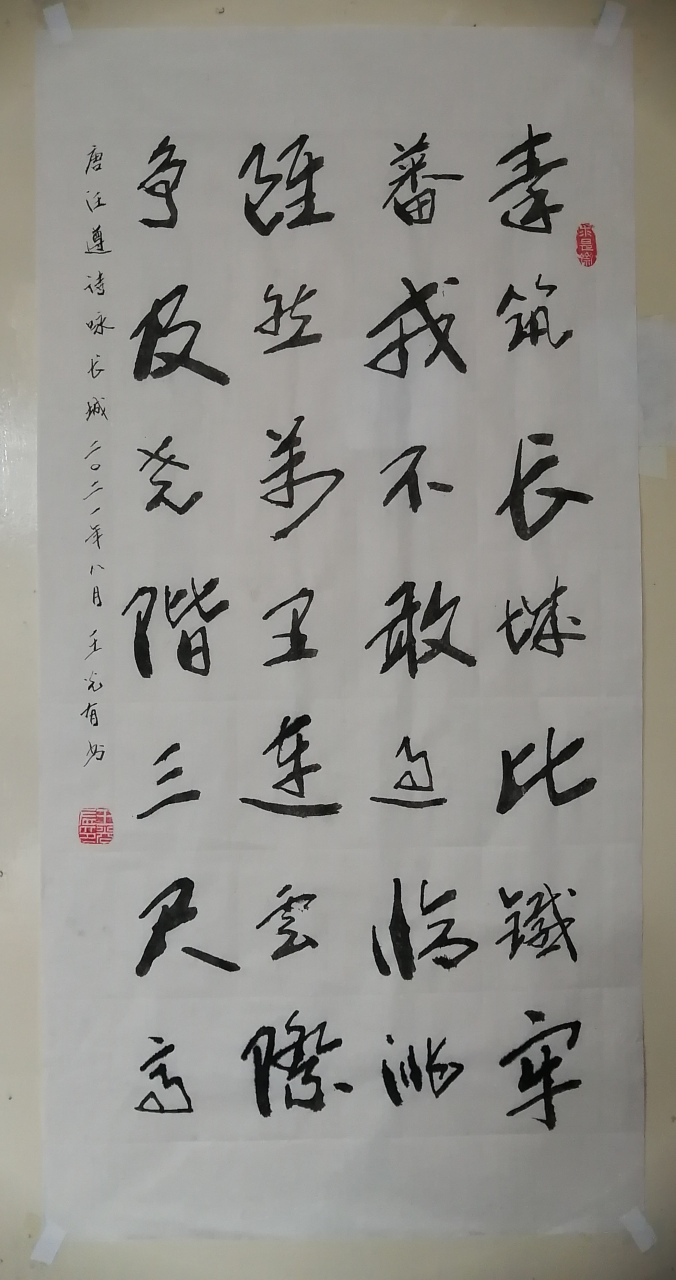 秦筑长城比鐵牢
蕃戎不敢过临洮
雖然萬里連雲際
争及尧階三尺高
唐汪遵诗咏长城二〇二一年八月王光有书